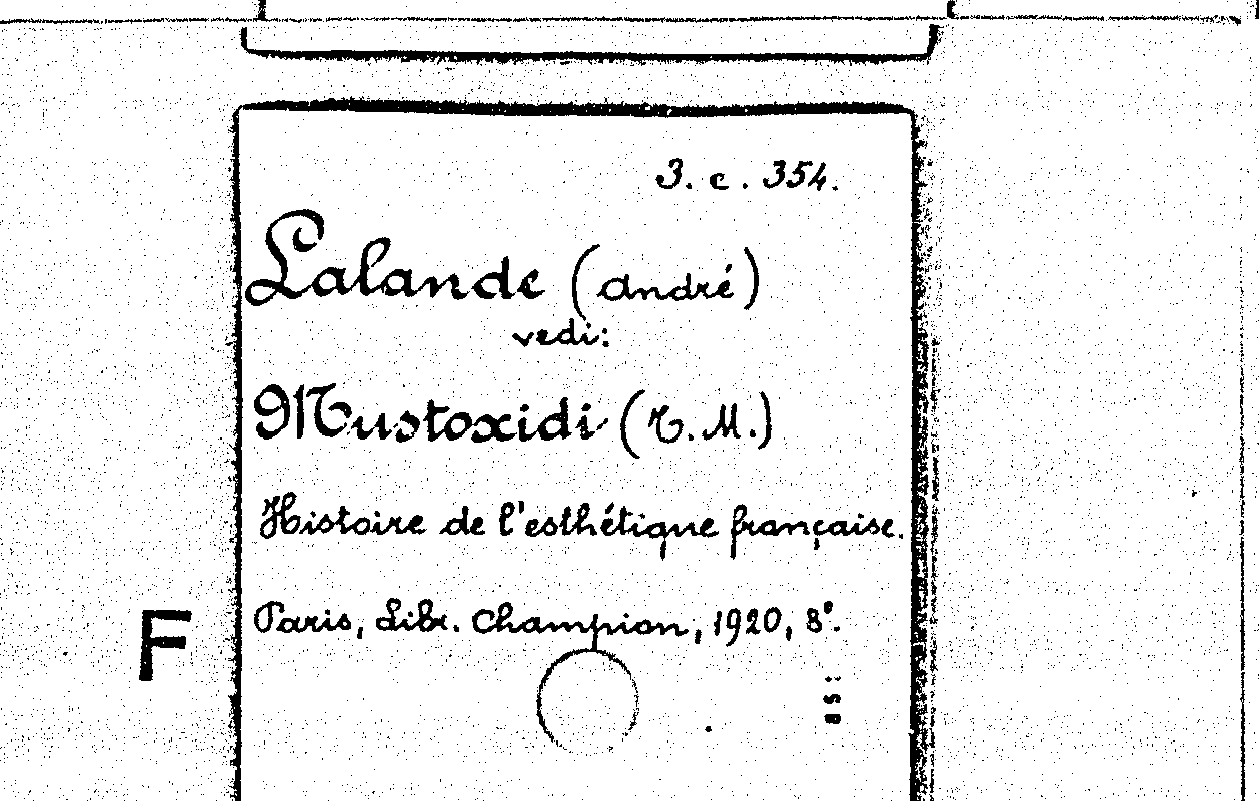 3. c. 354.
Lalande (André)
vedi:
Mustoxidi (T. M.)
Histoire de l'esthétique française.
Paris, Libr. Champion, 1920, 8°.
F